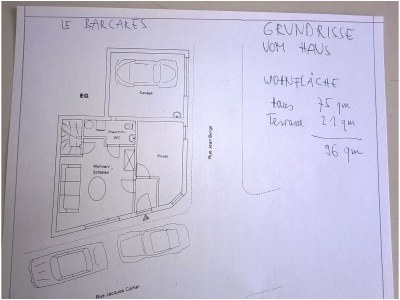 LE BARCARES
GRUNDRISSE
VOM HAUS
WOHNFLÄCHE
Haus 75 qm
Terrasse 21 qm
96 qm
EG
Garage
WC
Wohnen/
Schlafen
Privat
Rue Jean Borge
Rue Jacques Cartier